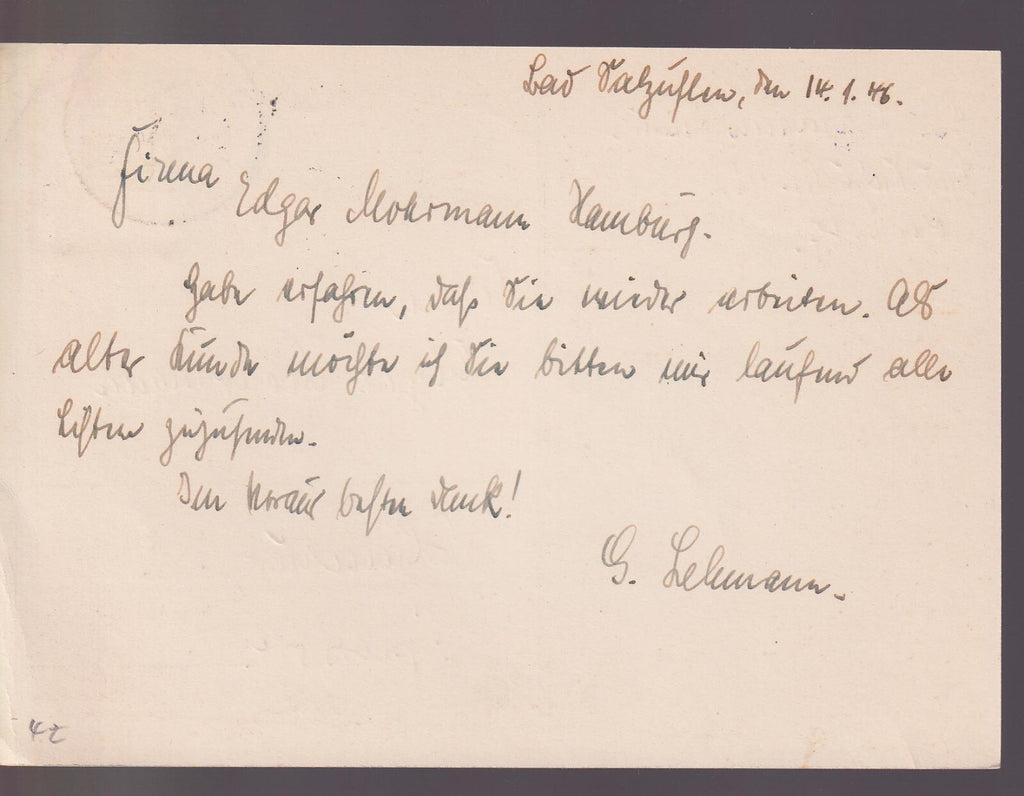 Bad Salzuflen, den 14. 1. 46.
Firma
Edgar Mohrmann Hamburg.
Habe erfahren, daß Sie wieder arbeiten. Als
alter Kunde möchte ich Sie bitten mir laufend alle
Listen zuzusenden.
Im Voraus besten Dank!
G. Lehmann.